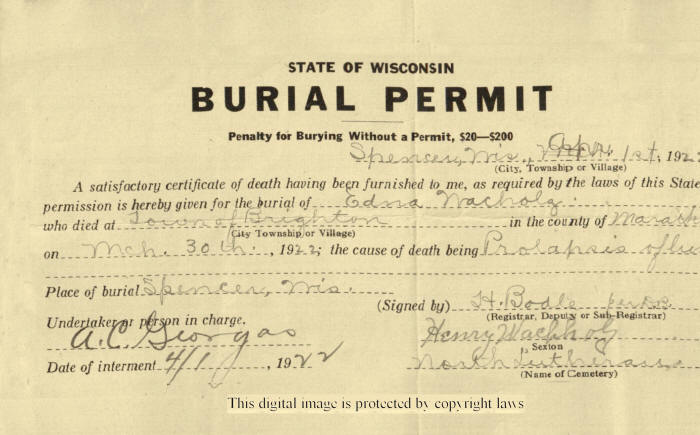 STATE OF WISCONSIN
BURIAL PERMIT
Penalty for Burying Without a Permit, $20—$200
Spencer, Wis., Apr. 1st, 192
(City, Township or Village)
A satisfactory certificate of death having been furnished to me, as required by the laws of this State
permission is hereby given for the burial of Edna Wacholz.
who died at Town of Brighton in the county of Marath
(City Township or Village)
on Mch. 30th., 1922; the cause of death being Prolapsis of
Place of burial Spencer, Wis.
(Signed by) H. Bodle per
(Registrar, Deputy or Sub-Registrar)
Undertaker or person in charge.
A.C. Georgas
Henry Wachholz
Sexton
Date of interment 4/1, 1922
North Lutheran
(Name of Cemetery)
This digital image is protected by copyright laws